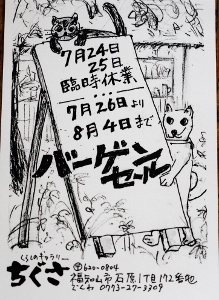 7月24日
25日
臨時休業
...
7月26日より
8月4日まで
バーゲン
セール
くらしのギャラリー
ちぐさ
〒620-0804
福知山市石原1丁目172番地
でんわ 0773-27-3309